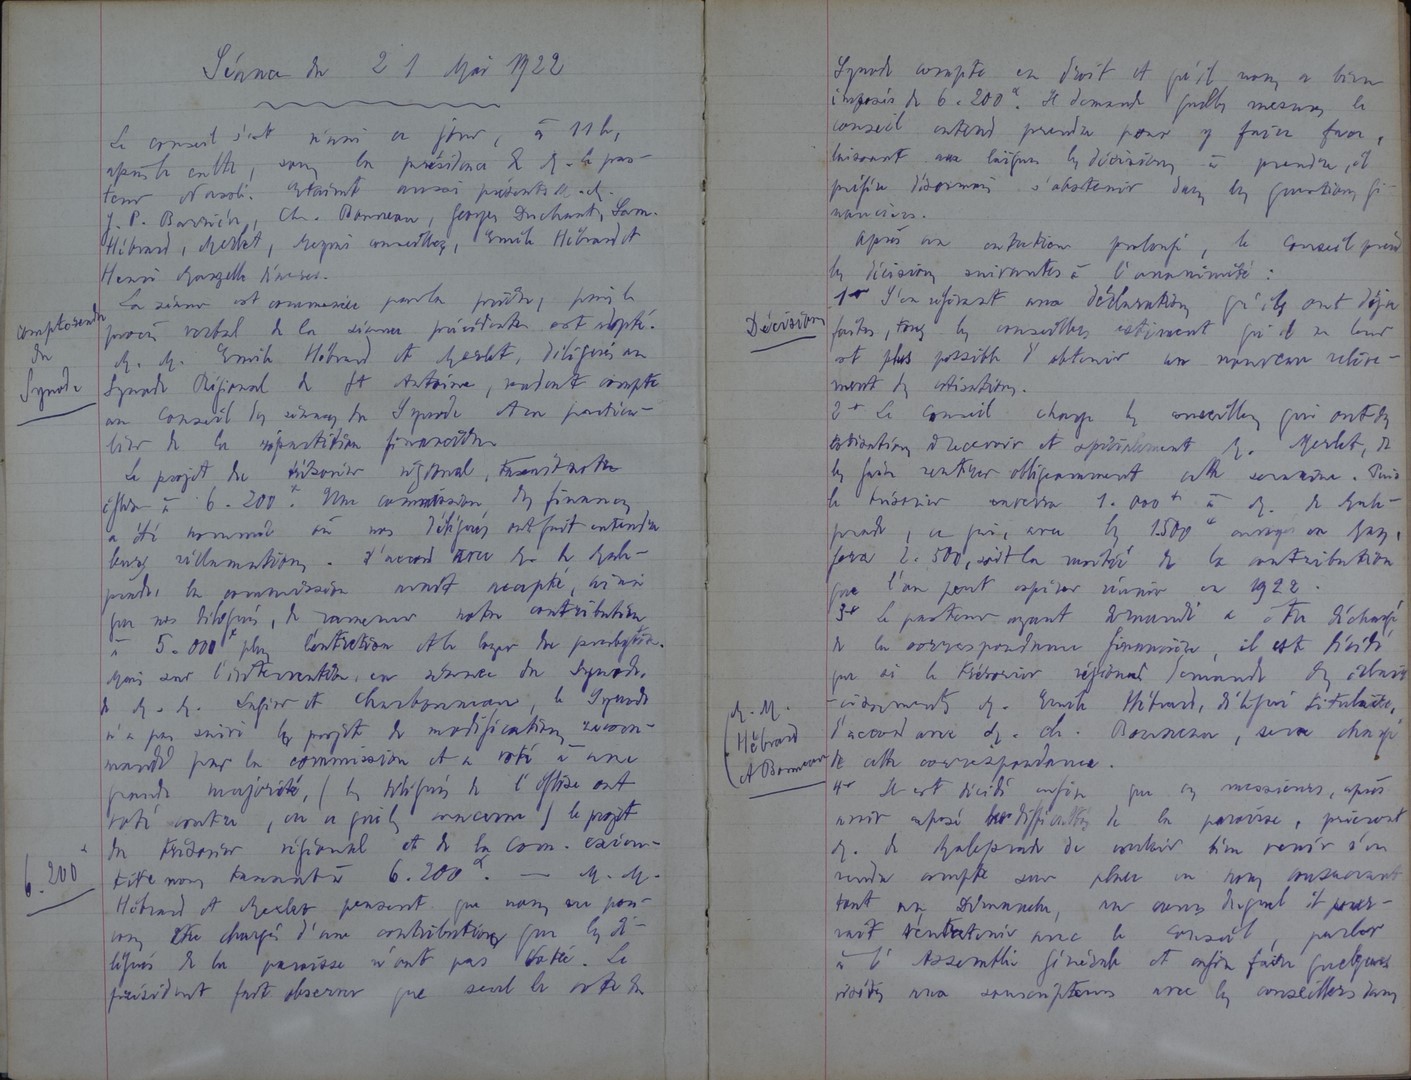 Séance du 21 Mai 1922
Le conseil s'est réuni ce jour, à 11 h,
après le culte, sous la présidence de M. le pas-
teur Nasoli. Etaient aussi présents M. M.
J. P. Barrière, Ch. Bonneau, Georges Duchant, Sam.
Hébrard, Merlet, conseillers, Emile Hébrard et
Henri diacres.
La séance est commencée par la prière, puis le
procès verbal de la séance précédente est adopté.
Compte rendu
du
Synode
M. M. Emile Hébrard et Merlet, délégués au
Synode Régional de St Antoine, rendent compte
au Conseil des séances du Synode et en particu-
lier de la répartition financière
Le projet du trésorier régional, taxait notre
église à 6.200 f. Une commission des finances
a été nommée où nos délégués ont fait entendre
leurs réclamations. D'accord avec M. de Male-
prade, la commission avait accepté, ainsi
que nos délégués, de ramener notre contribution
à 5.000 f plus l'entretien et le loyer du presbytère.
Mais sur l'intervention, en séance du Synode,
de M. M. et Charbonneau, le Synode
n'a pas suivi le projet de modification recom-
mandé par la commission et a voté à une
grande majorité, (les délégués de l'église ont
voté contre, en ce qui les concerne) le projet
du trésorier régional et de la Com. exécu-
tive nous taxant à 6.200 f. — M. M.
6.200 f
Hébrard et Merlet pensent que nous ne pou-
vons être chargés d'une contribution que les dé-
légués de la paroisse n'ont pas votée. Le
président fait observer que seul le vote du
Synode compte en droit et qu'il nous a bien
imposés de 6.200 f. Il demande quelles mesures le
conseil entend prendre pour y faire face,
laissant aux laïques les décisions à prendre, il
préfère désormais s'abstenir dans les questions fi-
nancières.
Après un entretien prolongé, le Conseil prend
les décisions suivantes à l'unanimité :
Décisions
1° S'en référant aux déclarations qu'ils ont déjà
faites, tous les conseillers estiment qu'il ne leur
est plus possible d'obtenir un nouveau relève-
ment des cotisations.
2° Le Conseil charge les conseillers qui ont des
cotisations à recevoir et spécialement M. Merlet, de
les faire rentrer obligeamment cette semaine. Puis
le trésorier enverra 1.000 f à M. de Male-
prade, ce qui, avec les 1500 f envoyés en
fera 2.500, soit la moitié de la contribution
que l'on peut espérer réunir en 1922.
3° Le pasteur ayant demandé à être déchargé
de la correspondance financière, il est décidé
que si le trésorier régional demande des éclair-
cissements M. Emile Hébrard, délégué titulaire,
d'accord avec M. Ch. Bonneau, sera chargé
de cette correspondance.
M. M.
Hébrard
et Bonneau
4° Il est décidé enfin que ces messieurs, après
avoir exposé les difficultés de la paroisse, prieront
M. de Maleprade de vouloir bien venir s'en
rendre compte sur place en nous consacrant
tout un Dimanche, au cours duquel il pour-
rait s'entretenir avec le Conseil, parler
à l'Assemblée Générale et enfin faire quelques
visites aux souscripteurs avec les conseillers dans